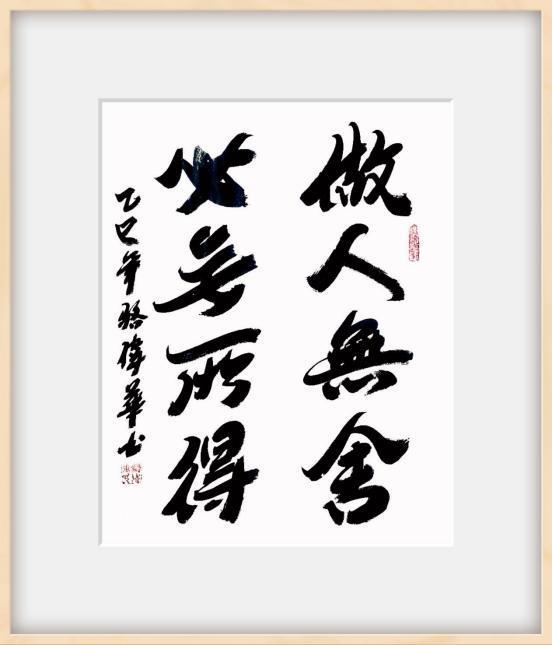 做人無舍
必无所得
乙巳年骆偉華书